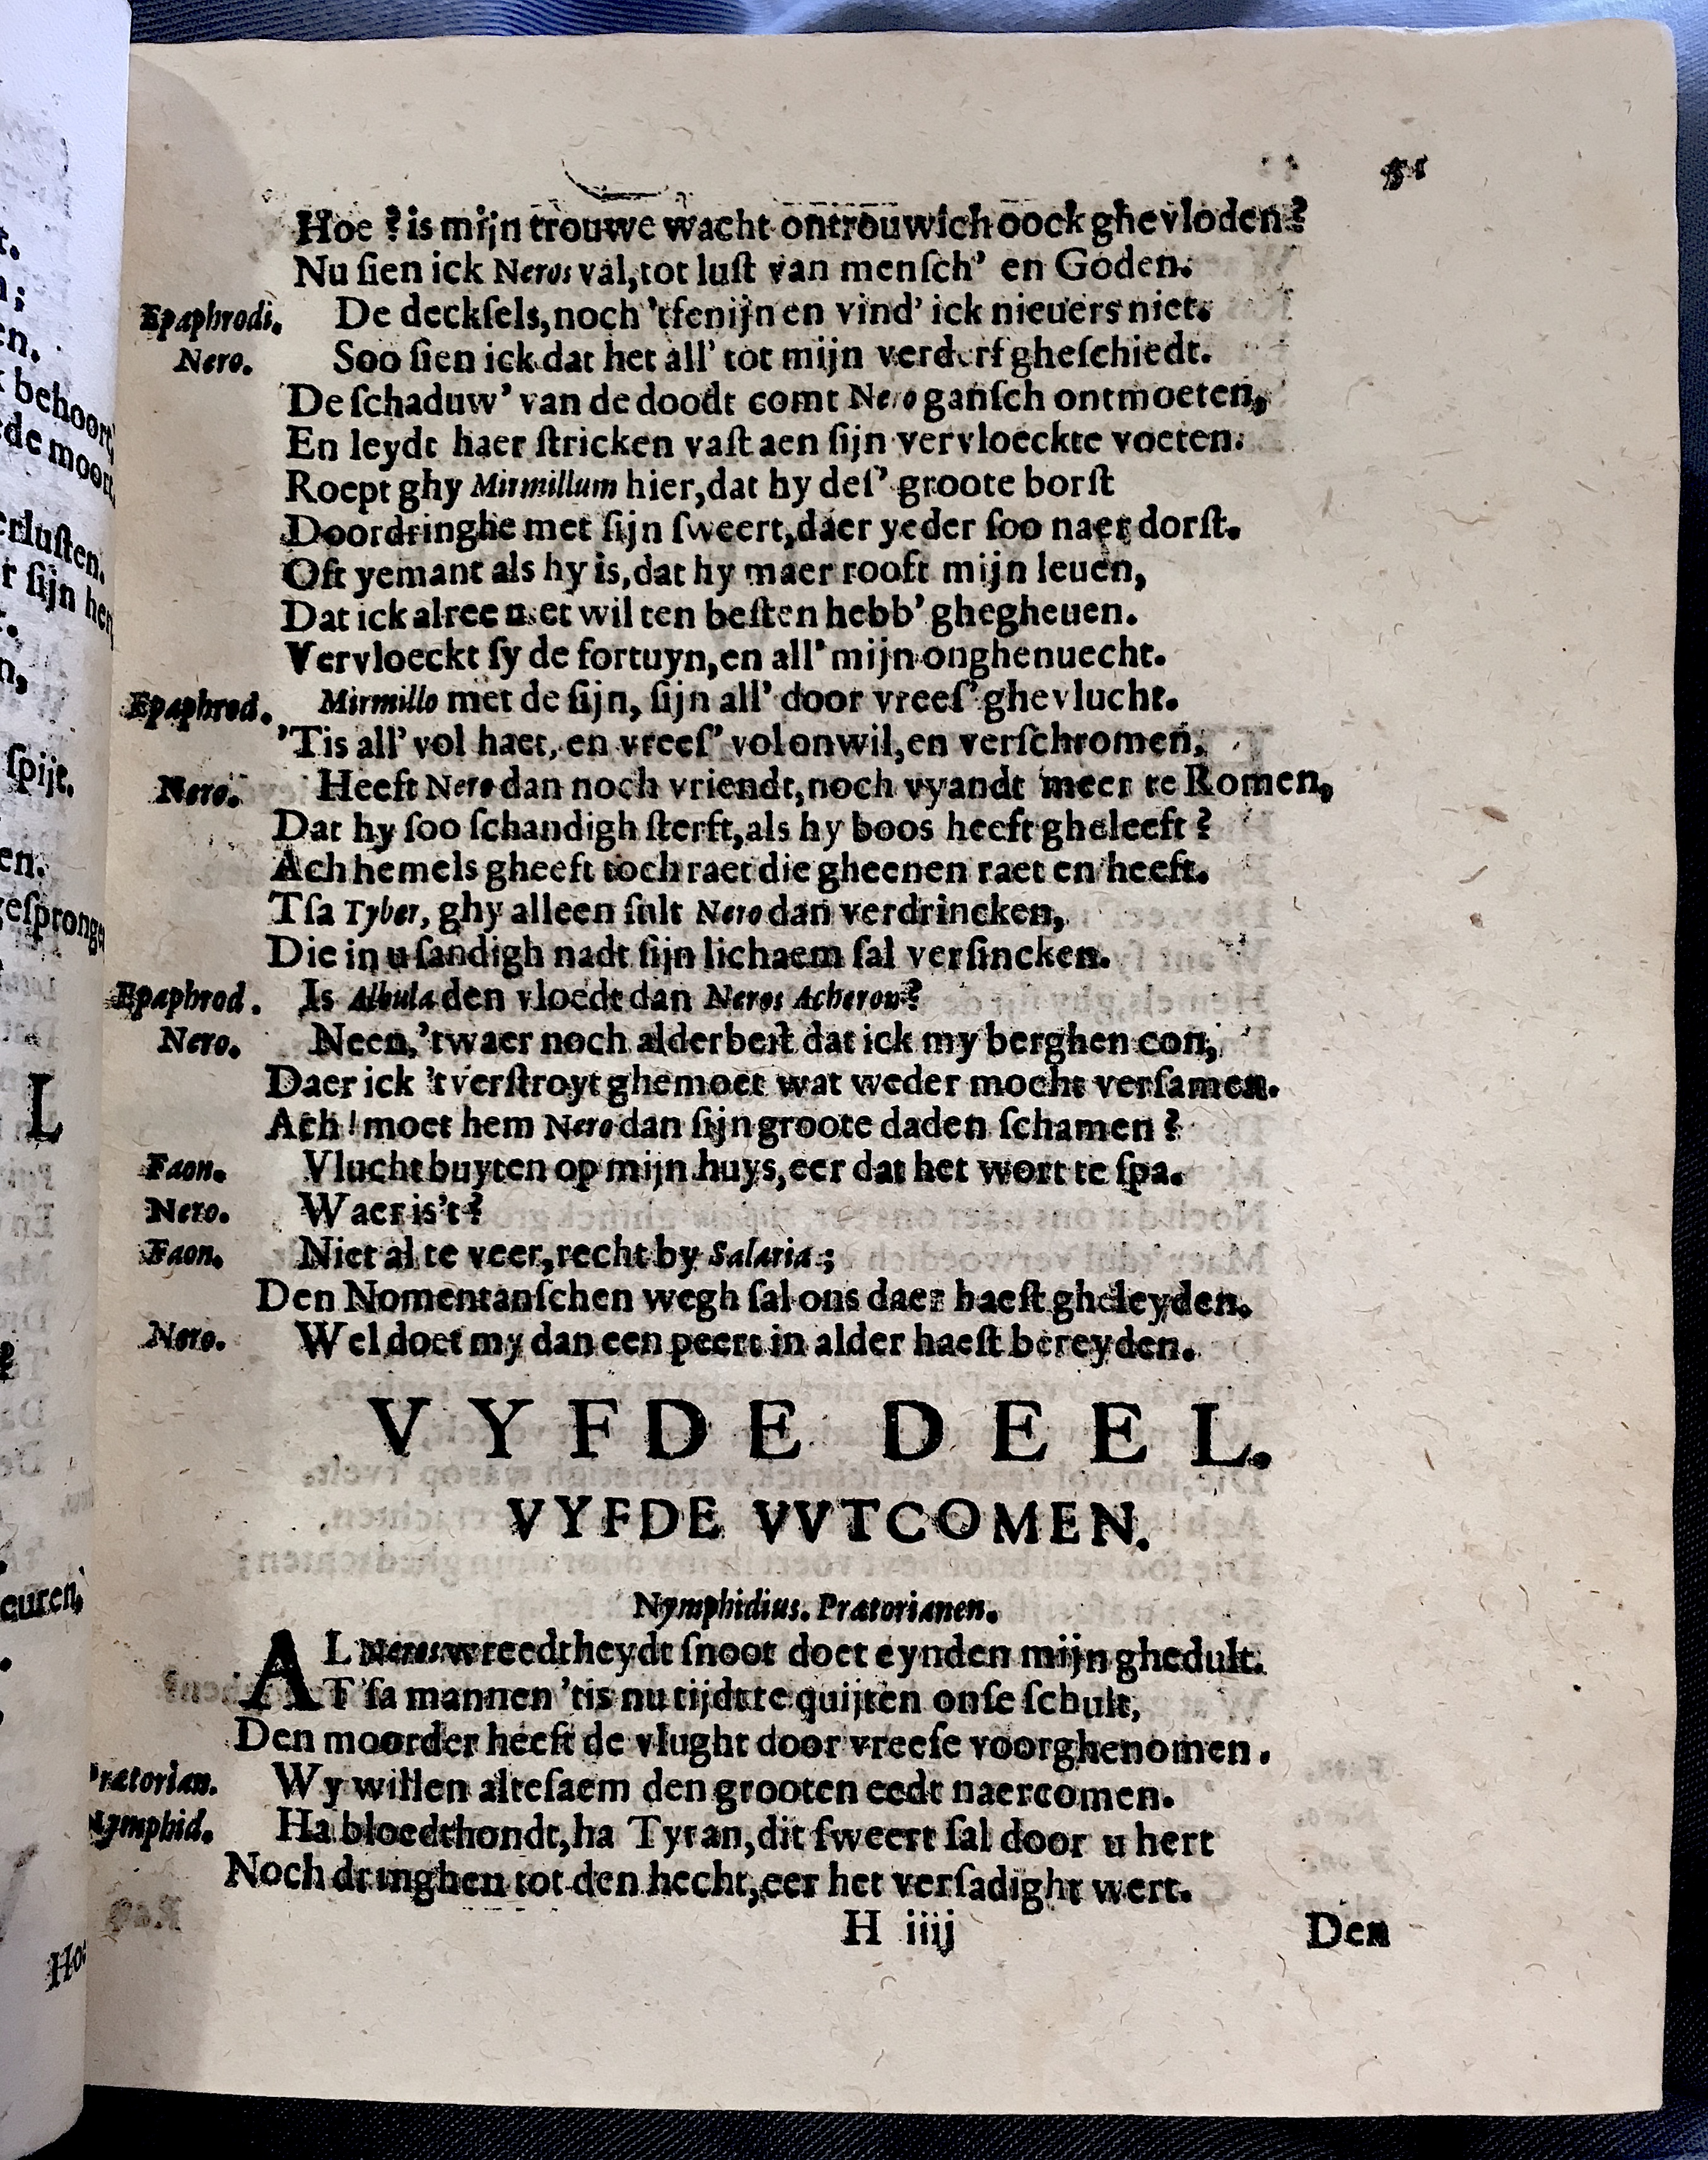 51
Hoe ? is mijn trouwe wacht ontrouwich oock ghevloden?
Nu ſien ick Neros val, tot luſt van menſch' en Goden.
Epaphrodi. De deckſels, noch 'tfenijn en vind' ick nieuers niet.
Nero. Soo ſien ick dat het all' tot mijn verderf gheſchiedt.
De ſchaduw' van de doodt comt Nero ganſch ontmoeten,
En leydt haer ſtricken vaſt aen ſijn vervloeckte voeten.
Roept ghy Mirmillum hier, dat hy deſ' groote borſt
Doordringhe met ſijn ſweert, daer yeder ſoo naer dorſt.
Oft yemant als hy is, dat hy maer rooft mijn leuen,
Dat ick alree met wil ten beſten hebb' ghegheuen.
Vervloeckt ſy de fortuyn, en all' mijn onghenuecht.
Epaphrod. Mirmillo met de ſijn, ſijn all' door vreeſ' ghevlucht.
'Tis all' vol haet, en vreeſ' vol onwil, en verſchromen.
Nero. Heeft Nero dan noch vriendt, noch vyandt meer te Romen,
Dat hy ſoo ſchandigh ſterft, als hy boos heeft gheleeft ?
Ach hemels gheeft toch raet die gheenen raet en heeft.
Tſa Tyber, ghy alleen ſult Nero dan verdrincken,
Die in u ſandigh nadt ſijn lichaem ſal verſincken.
Epaphrod. Is Albula den vloedt dan Neros Acheron?
Nero. Neen, 'twaer noch alderbeſt dat ick my berghen con,
Daer ick 't verſtroyt ghemoet wat weder mocht verſamen.
Ach! moet hem Nero dan ſijn groote daden ſchamen ?
Faon. Vlucht buyten op mijn huys, eer dat het wort te ſpa.
Nero. Waer is't ?
Faon. Niet al te veer, recht by Salaria ;
Den Nomentanſchen wegh ſal ons daer haeſt gheleyden.
Nero. Wel doet my dan een peert in alder haeſt bereyden.
VYFDE DEEL.
VYFDE VVTCOMEN.
Nymphidius. Prætorianen.
AL Neros wreedtheydt ſnoot doet eynden mijn ghedult.
T'ſa mannen 'tis nu tijdt te quijten onſe ſchult,
Den moorder heeft de vlught door vreeſe voorghenomen.
Prætorian. Wy willen alteſaem den grooten eedt naercomen.
Nymphid. Ha bloedthondt, ha Tyran, dit ſweert ſal door u hert
Noch dringhen tot den hecht, eer het verſadight wert.
H iiij Den